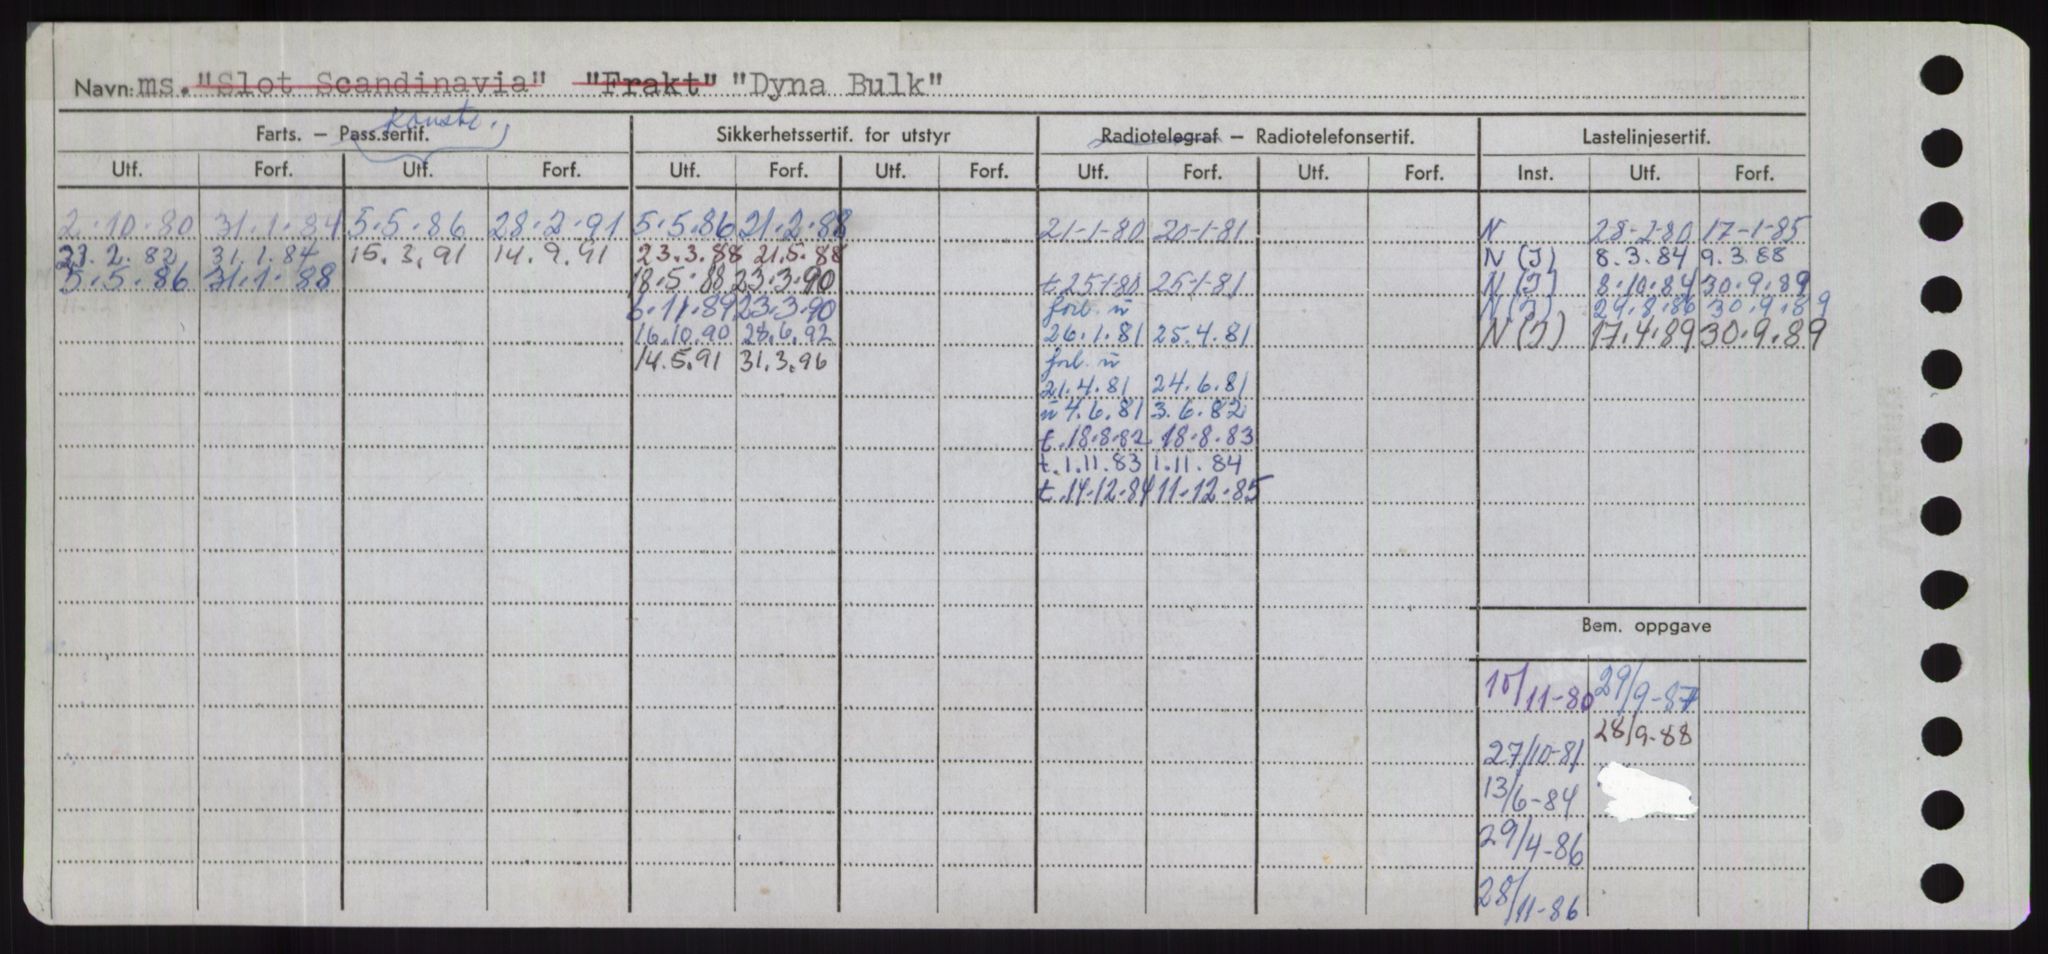 Navn: ms. "Slot Scandinavia" "Frakt" "Dyna Bulk"
Konstr.
Farts. — Pass.sertif. Sikkerhetssertif. for utstyr Radiotelegraf — Radiotelefonsertif. Lastelinjesertif.
Utf. Forf. Utf. Forf. Utf. Forf. Utf. Forf. Utf. Forf. Utf. Forf. Inst. Utf. Forf.
2.10.80 31.1.84 5.5.86 28.2.91 5.5.86 21.2.88 21-1-80 20-1-81 N 28-2-80 17-1-85
23.2.82 31.1.84 15.3.91 14.9.91 23.3.88 21.5.88 N (I) 8.3.84 9.3.88
5.5.86 31.1.88 18.5.88 23.3.90 t.25-1-80 25-1-81 N (I) 8.10.84 30.9.89
6.11.89 23.3.90 forl. ū N (I) 29.8.86 30.9.89
16.10.90 28.6.92 26.1.81 25.4.81 N (I) 17.4.89 30.9.89
14.5.91 31.3.96 forl. ū
21.4.81 24.6.81
ū 4.6.81 3.6.82
t.18.8.82 18.8.83
t.1.11.83 1.11.84
t.14.12.84 11.12.85
Bem. oppgave
10/11-80 29/9-87
28/9-88
27/10-81
13/6-84
29/4-86
28/11-86